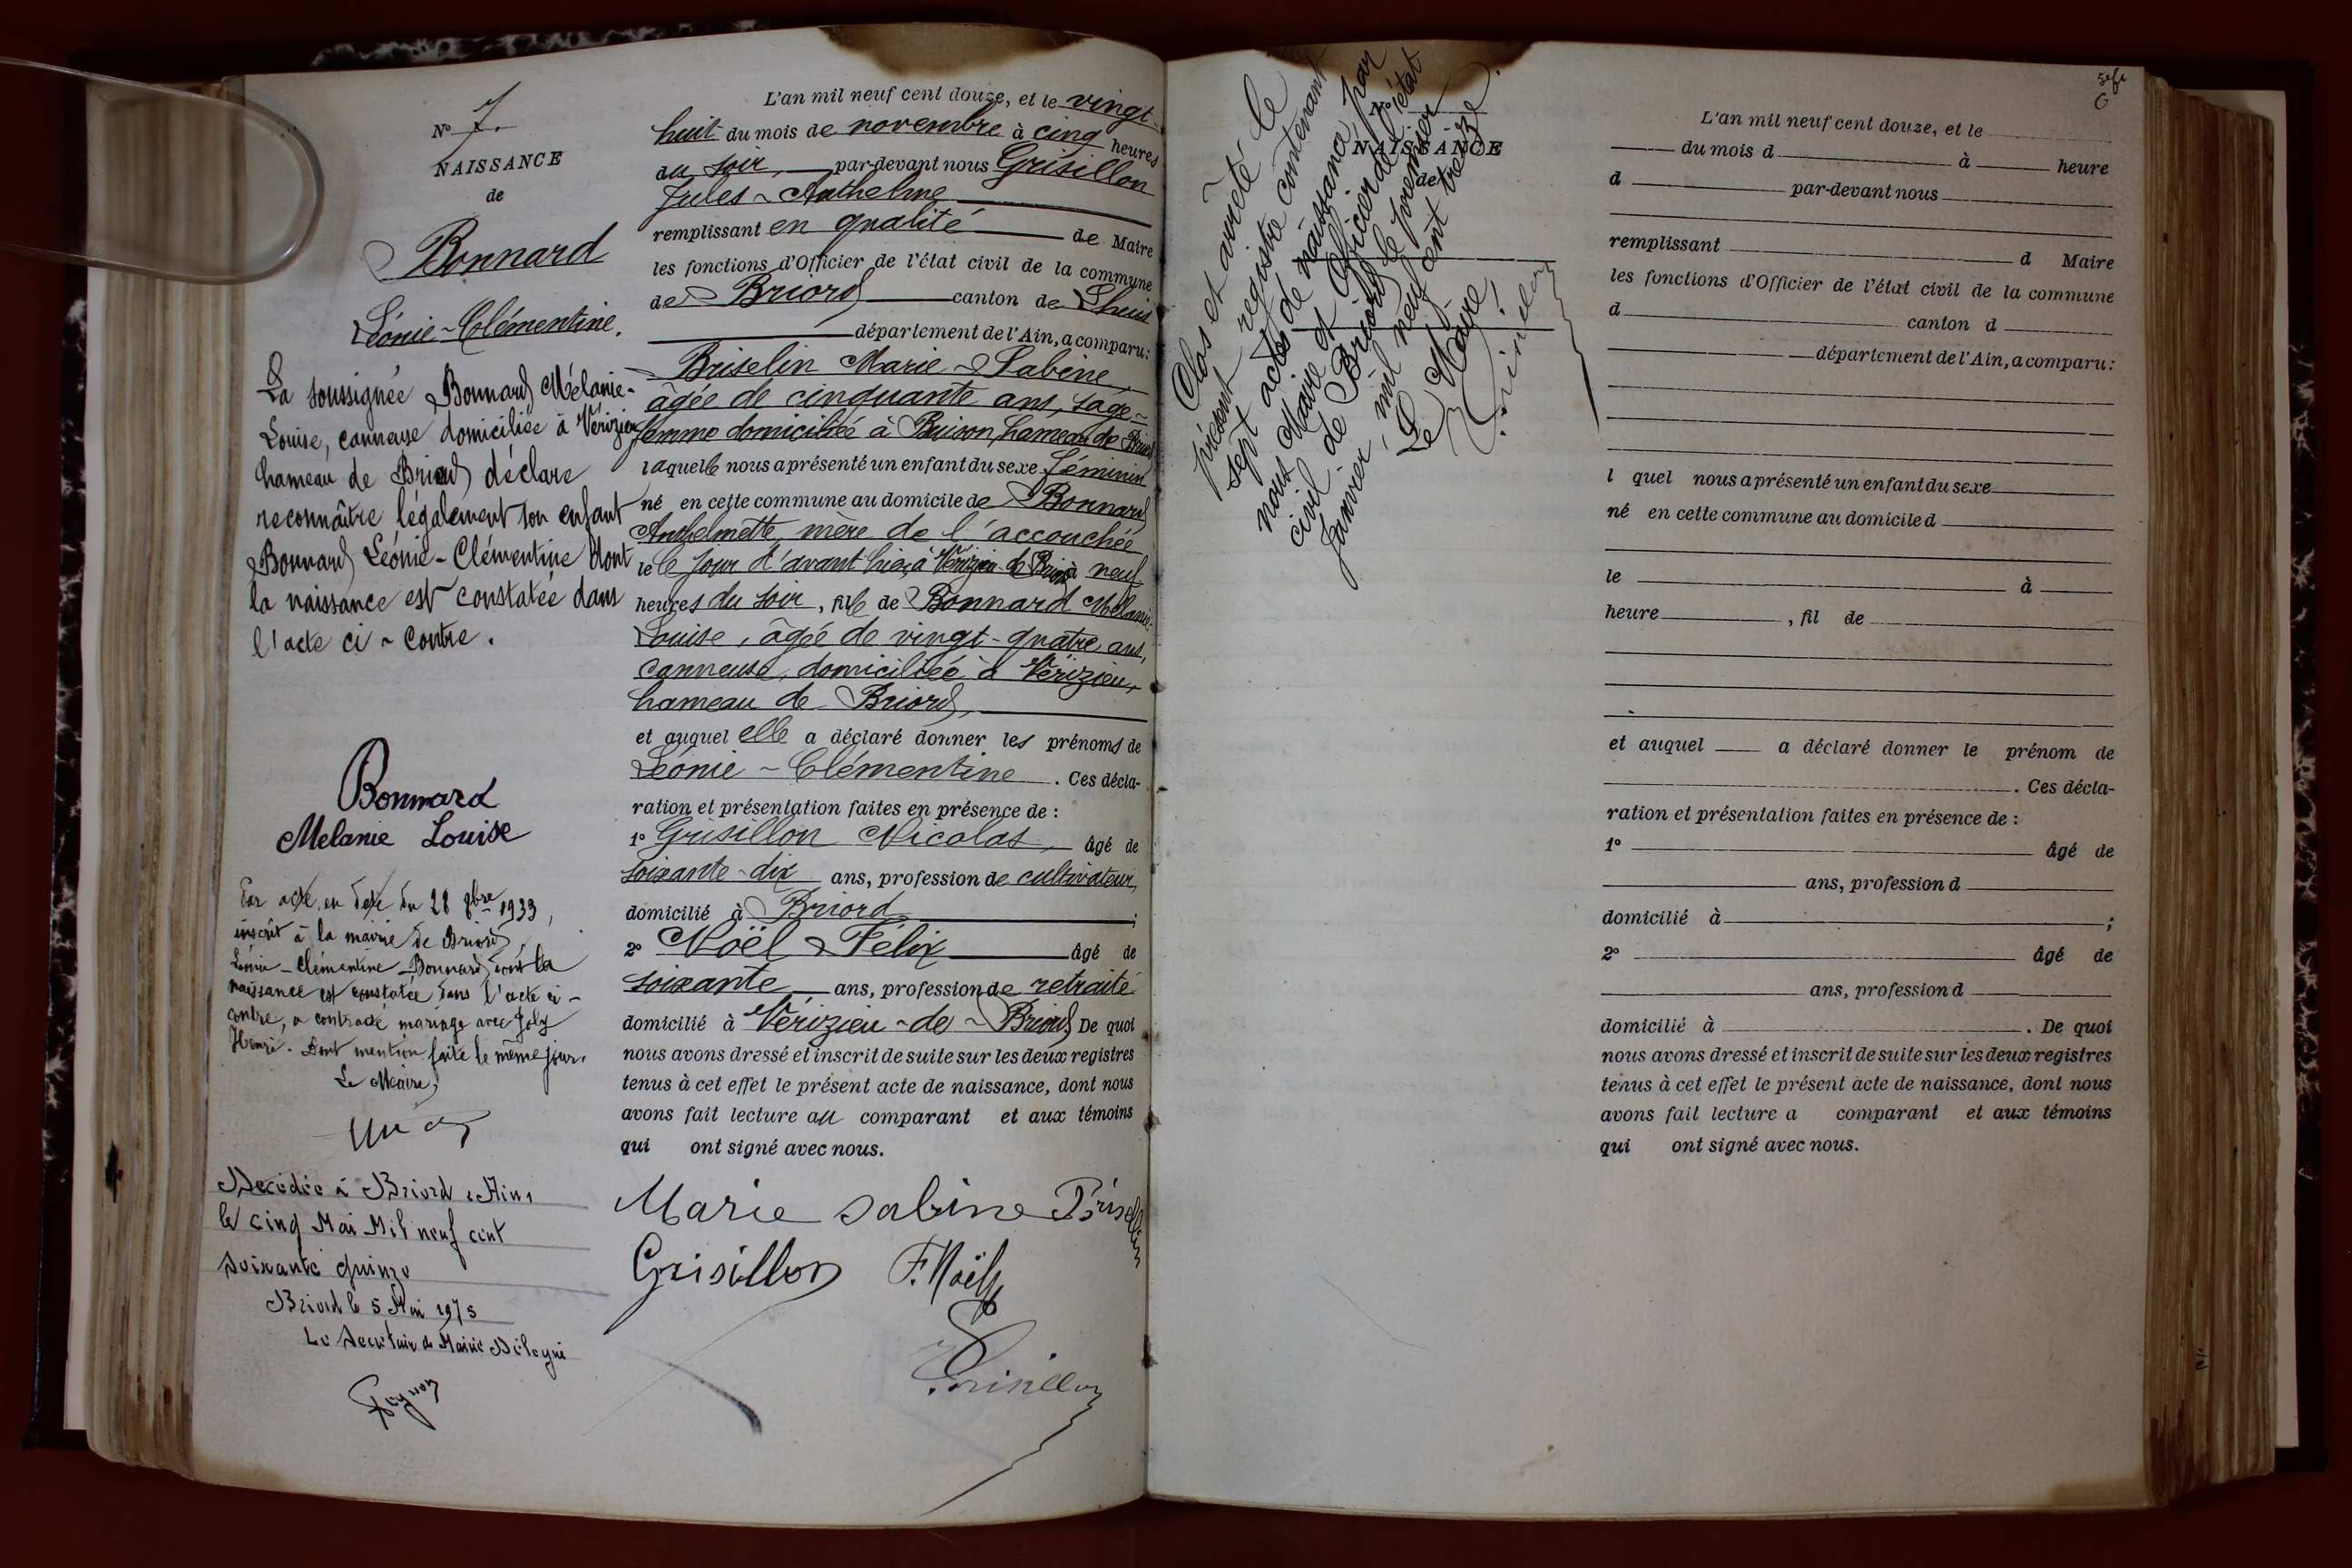 N° 7.
NAISSANCE
de
Bonnard
Léonie-Clémentine.
La soussignée Bonnard Mélanie-
Louise, canneuse domiciliée à Vérizieu
hameau de Briord déclare
reconnaître légalement son enfant
Bonnard Léonie-Clémentine dont
la naissance est constatée dans
l'acte ci-contre.
Bonnard
Melanie Louise
Par acte en date du 28 8bre 1933,
inscrit à la mairie de Briord,
Léonie-Clémentine Bonnard dont la
naissance est constatée dans l'acte ci-
contre, a contracté mariage avec Joly
Henri. Dont mention faite le même jour.
Le Maire,
Decédée à Briord (Ain)
le cinq Mai Mil neuf cent
soixante quinze
Briord le 5 Mai 1975
Le Secrétaire de Mairie Délégué
L'an mil neuf cent douze, et le vingt-
huit du mois de novembre à cinq heures
du soir, par-devant nous Grisillon
Jules-Anthelme
remplissant en qualité de Maire
les fonctions d'Officier de l'état civil de la commune
de Briord canton de Lhuis
département de l'Ain, a comparu:
Briselin Marie-Sabine,
âgée de cinquante ans, sage-
femme domiciliée à Buison, hameau de Briord
laquelle nous a présenté un enfant du sexe féminin
né en cette commune au domicile de Bonnard
Anthelmette, mère de l'accouchée
le le jour d'avant hier, à Vérizieu-de-Briord à neuf
heures du soir, fille de Bonnard Mélanie-
Louise, âgée de vingt-quatre ans,
canneuse, domiciliée à Vérizieu,
hameau de Briord,
et auquel elle a déclaré donner les prénoms de
Léonie-Clémentine. Ces décla-
ration et présentation faites en présence de :
1° Grisillon Nicolas, âgé de
soixante-dix ans, profession de cultivateur,
domicilié à Briord ;
2° Noël Félix âgé de
soixante ans, profession de retraité
domicilié à Vérizieu-de-Briord. De quoi
nous avons dressé et inscrit de suite sur les deux registres
tenus à cet effet le présent acte de naissance, dont nous
avons fait lecture au comparant et aux témoins
qui ont signé avec nous.
Marie Sabine Briselin
Grisillon F. Noël
Grisillon
Clos et arrêté le
présent registre contenant
sept actes de naissance par
nous Maire et Officier de l'état
civil de Briord le premier
Janvier mil neuf cent treize.
Le Maire,
Grisillon
N°
NAISSANCE
de
L'an mil neuf cent douze, et le
du mois d à heure
d par-devant nous
remplissant d Maire
les fonctions d'Officier de l'état civil de la commune
d canton d
département de l'Ain, a comparu:
l quel nous a présenté un enfant du sexe
né en cette commune au domicile d
le à
heure , fil de
et auquel a déclaré donner le prénom de
. Ces décla-
ration et présentation faites en présence de :
1° âgé de
ans, profession d
domicilié à ;
2° âgé de
ans, profession d
domicilié à . De quoi
nous avons dressé et inscrit de suite sur les deux registres
tenus à cet effet le présent acte de naissance, dont nous
avons fait lecture a comparant et aux témoins
qui ont signé avec nous.